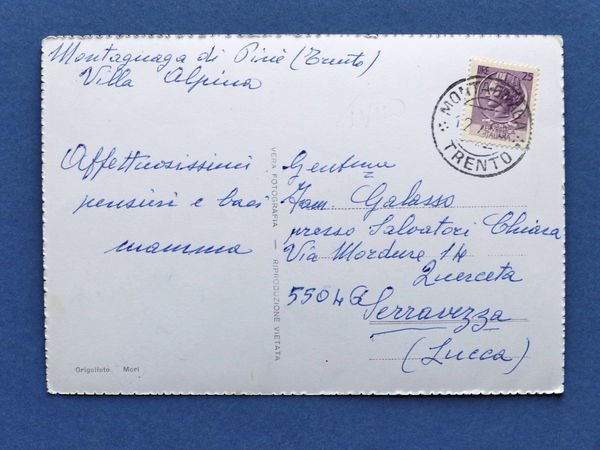 Montagnaga di Pinè (Trento)
Villa Alpina
Affettuosissimi
pensieri e baci
mamma
VERA FOTOGRAFIA — RIPRODUZIONE VIETATA
Grigolfoto Mori
25
TRENTO
Fam. Galasso
presso Salvatori Chiara
Via Mordure 14
Querceta
55046
Serravezza
(Lucca)